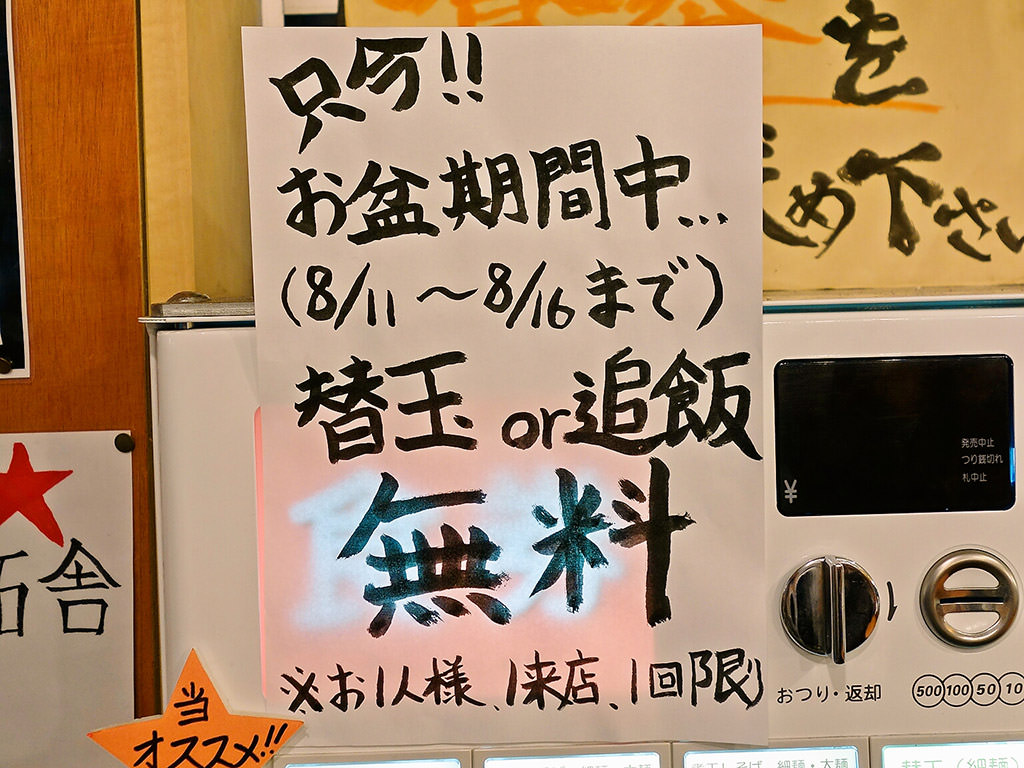 只今!!
お盆期間中...
(8/11～8/16まで)
替玉or追飯
無料
※お1人様、1来店、1回限り
を
め下さい
舎
当
オススメ!!
発売中止
つり銭切れ
札中止
¥
おつり・返却
500 100 50 10
細麺・太麺
替玉(細麺)